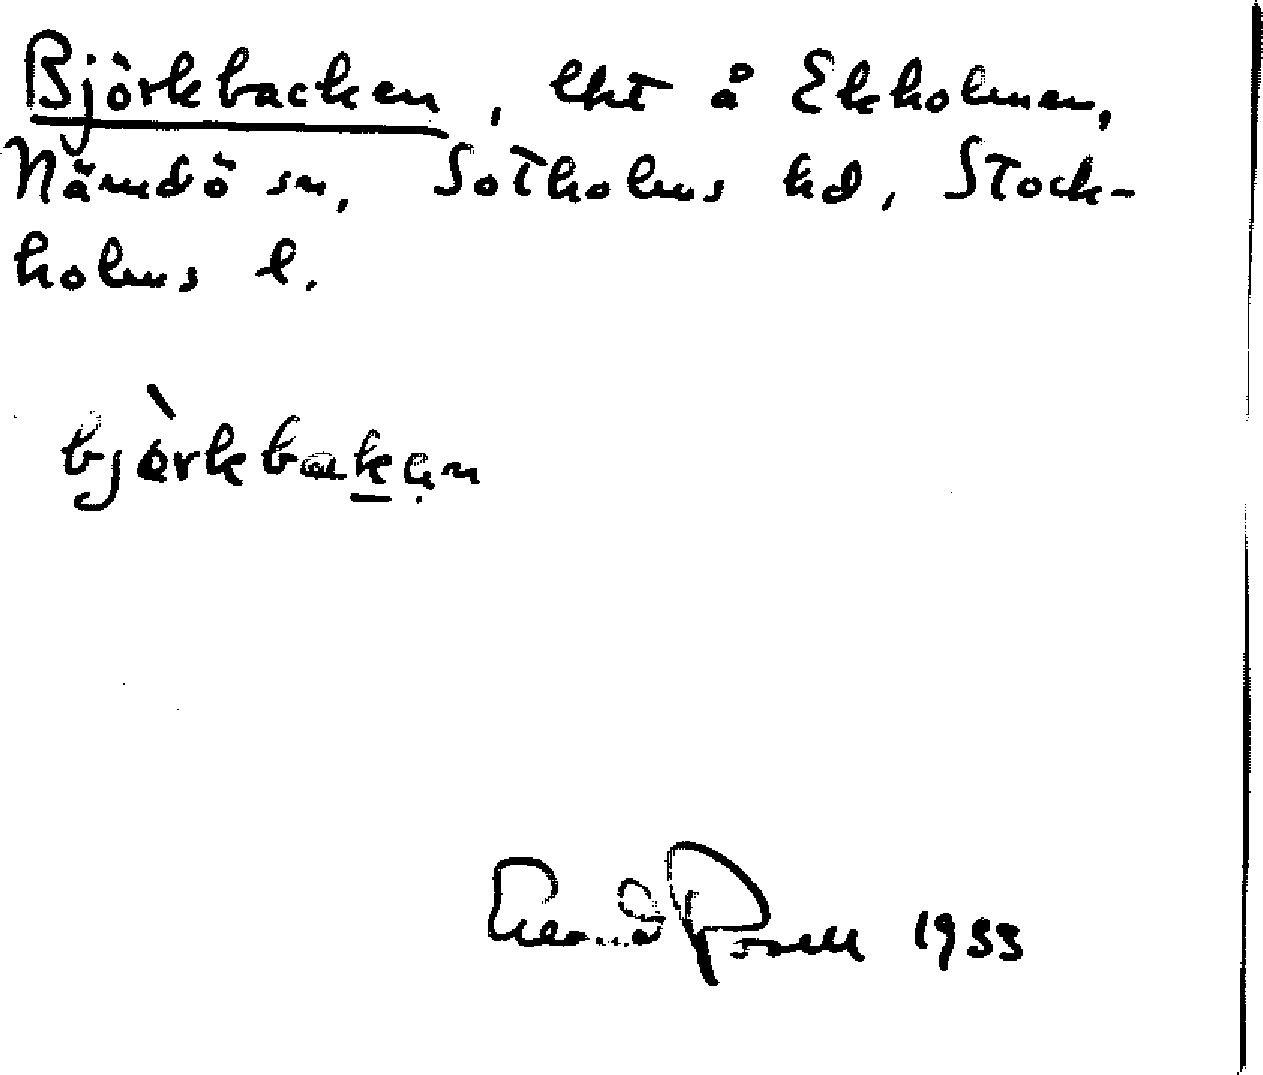 Björkbacken, lht å Ekholmen,
Nämdö sn, Sotholms hd, Stock-
holms l.
bjòrkbakẹn
Erland Rosell 1953